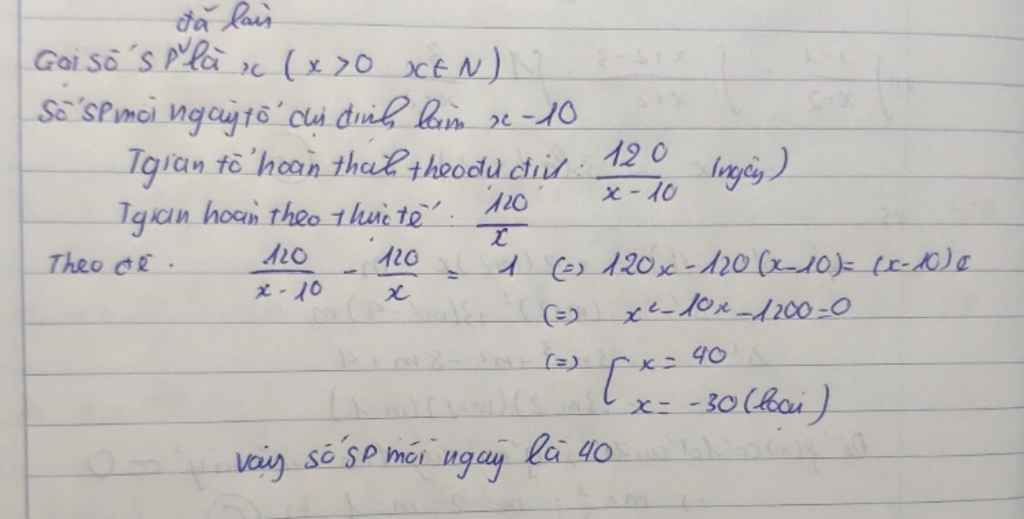 đã làm
Gọi số SP là x ( x > 0 x ∈ N )
Số SP mỗi ngày tổ dự định làm x - 10
Tgian tổ hoàn thàh theo dự địh : 120/(x - 10) (ngày)
Tgian hoàn theo thực tế : 120/x
Theo đề . 120/(x - 10) - 120/x = 1 (=) 120x - 120(x-10) = (x-10)x
(=) x² - 10x - 1200 = 0
(=) [ x = 40
x = -30 (loại)
vậy số SP mỗi ngày là 40